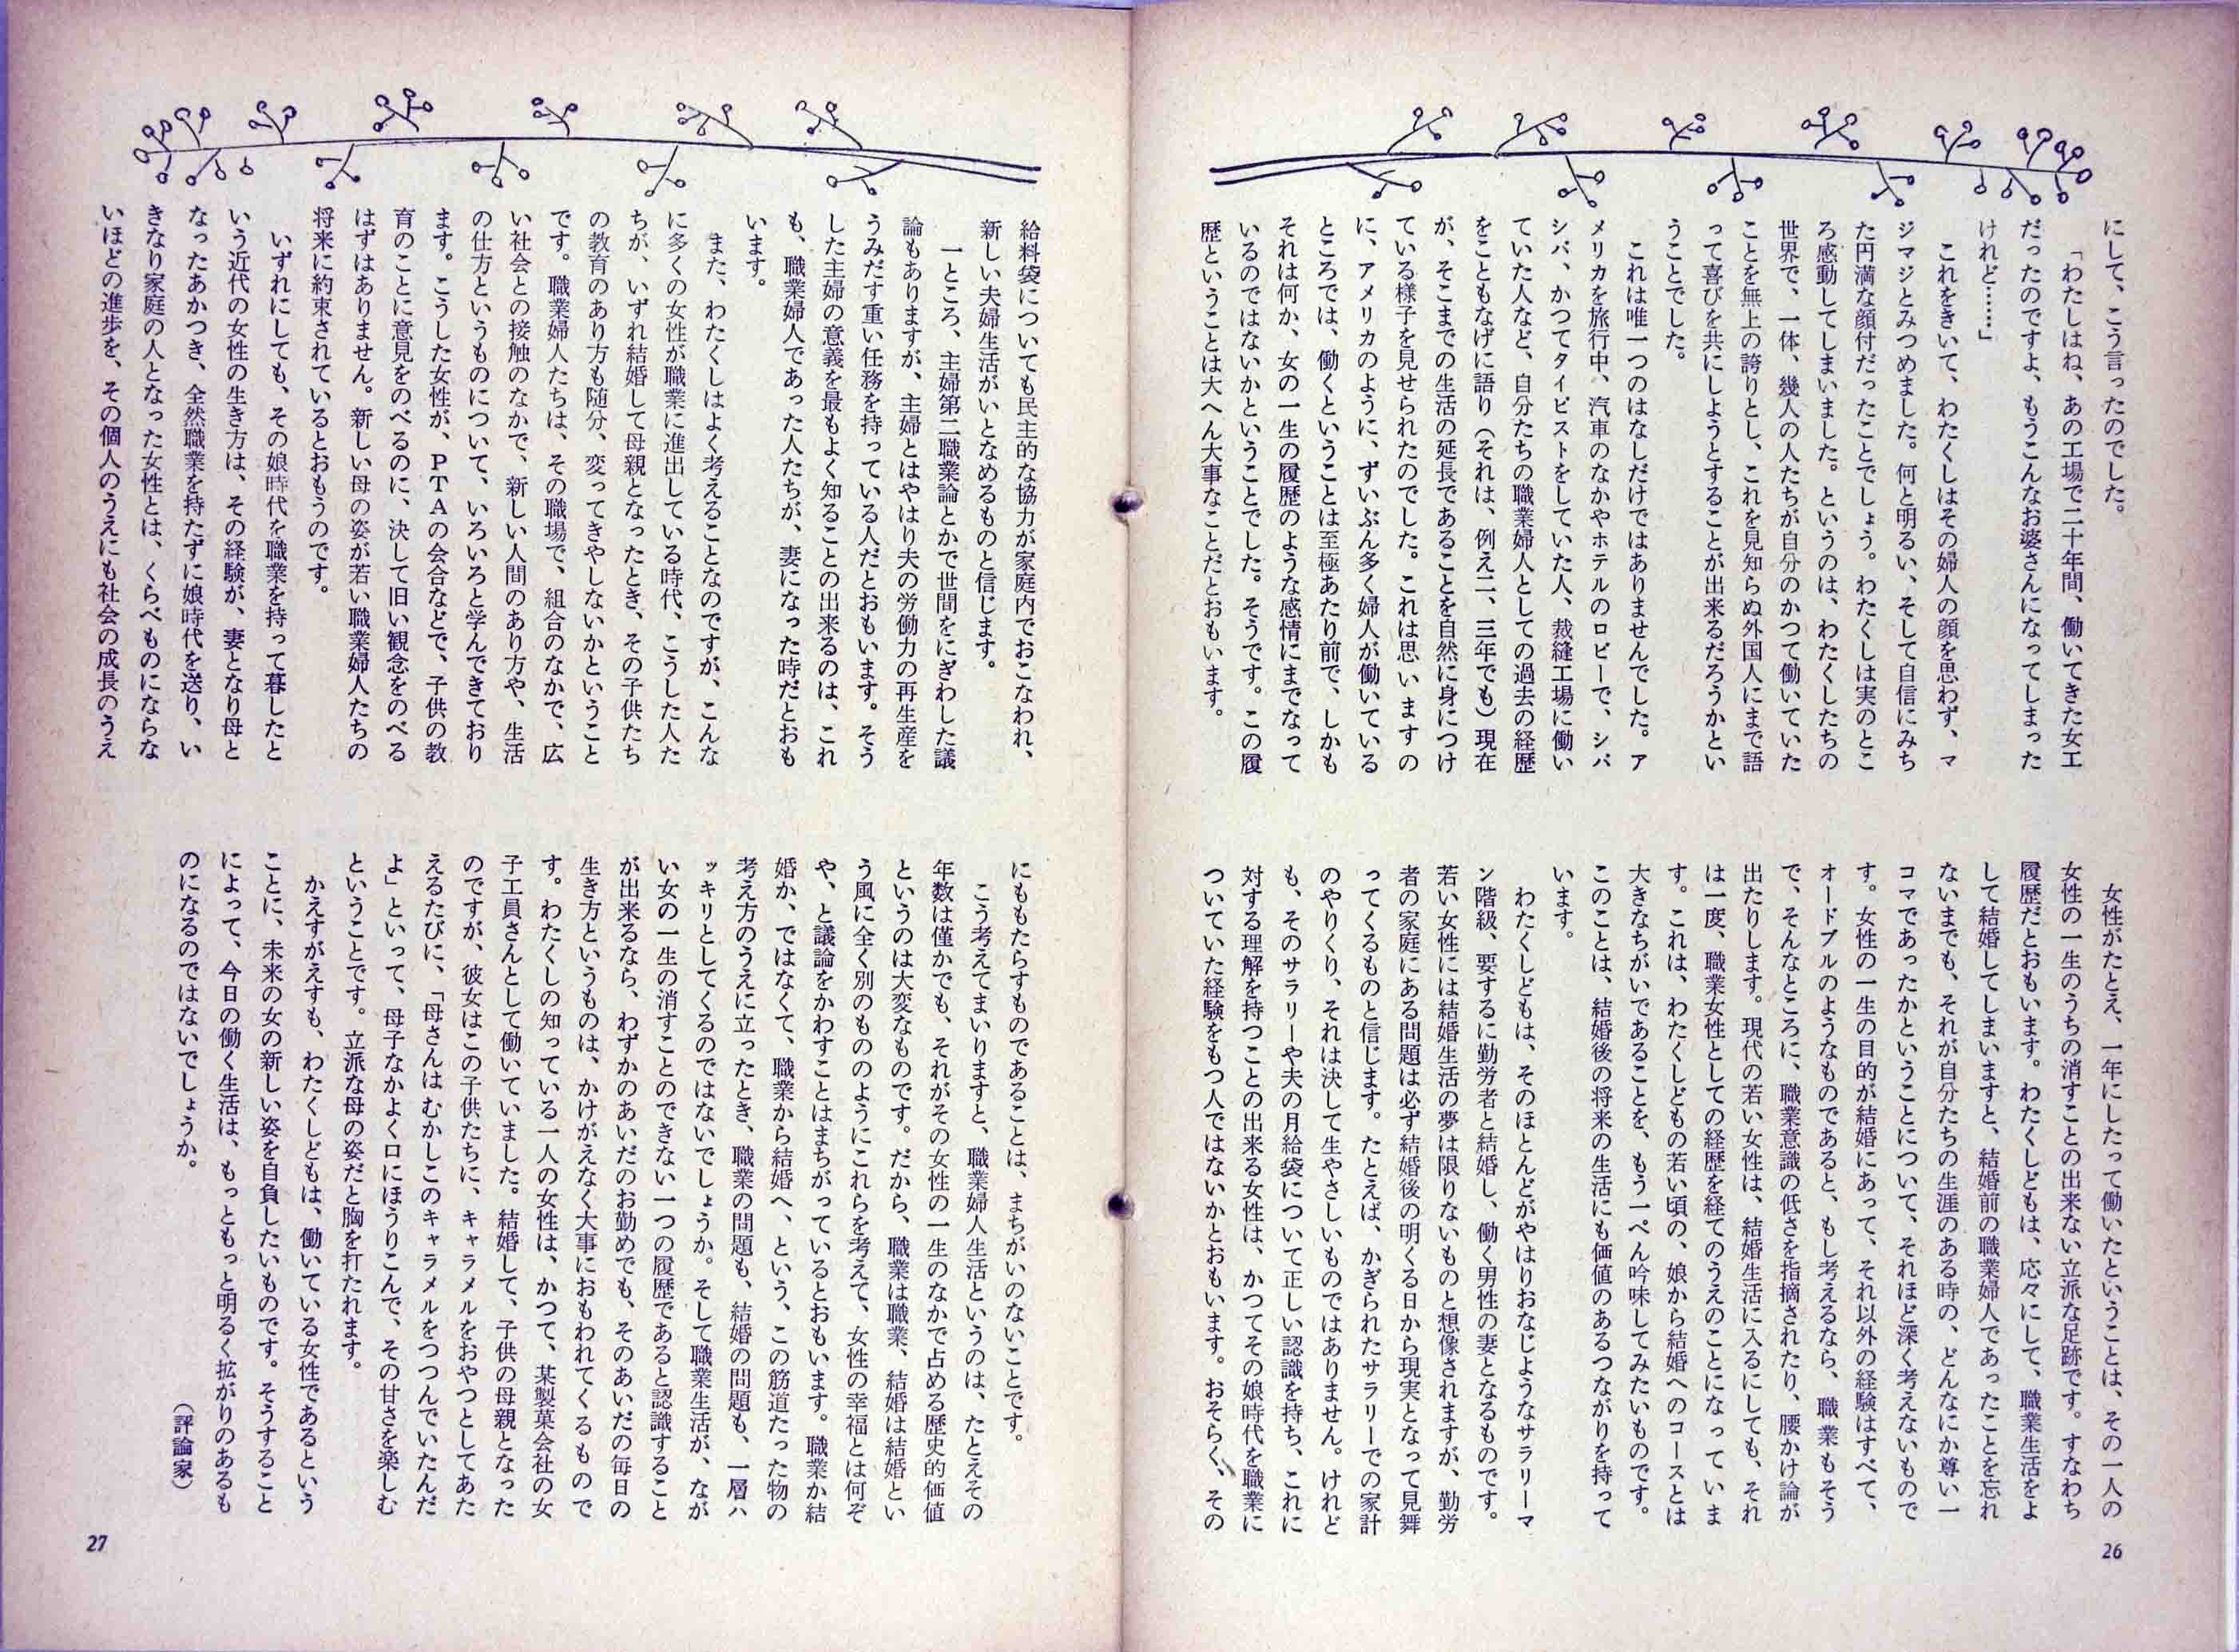 にして、こう言ったのでした。
「わたしはね、あの工場で二十年間、働いてきた女工
だったのですよ、もうこんなお婆さんになってしまった
けれど……」
これをきいて、わたくしはその婦人の顔を思わず、マ
ジマジとみつめました。何と明るい、そして自信にみち
た円満な顔付だったことでしょう。わたくしは実のとこ
ろ感動してしまいました。というのは、わたくしたちの
世界で、一体、幾人の人たちが自分のかつて働いていた
ことを無上の誇りとし、これを見知らぬ外国人にまで語
って喜びを共にしようとすることが出来るだろうかとい
うことでした。
これは唯一つのはなしだけではありませんでした。ア
メリカを旅行中、汽車のなかやホテルのロビーで、シバ
シバ、かつてタイピストをしていた人、裁縫工場に働い
ていた人など、自分たちの職業婦人としての過去の経歴
をこともなげに語り（それは、例え二、三年でも）現在
が、そこまでの生活の延長であることを自然に身につけ
ている様子を見せられたのでした。これは思いますの
に、アメリカのように、ずいぶん多く婦人が働いている
ところでは、働くということは至極あたり前で、しかも
それは何か、女の一生の履歴のような感情にまでなって
いるのではないかということでした。そうです。この履
歴ということは大へん大事なことだとおもいます。
女性がたとえ、一年にしたって働いたということは、その一人の
女性の一生のうちの消すことの出来ない立派な足跡です。すなわち
履歴だとおもいます。わたくしどもは、応々にして、職業生活をよ
して結婚してしまいますと、結婚前の職業婦人であったことを忘れ
ないまでも、それが自分たちの生涯のある時の、どんなにか尊い一
コマであったかということについて、それほど深く考えないもので
す。女性の一生の目的が結婚にあって、それ以外の経験はすべて、
オードブルのようなものであると、もし考えるなら、職業もそう
で、そんなところに、職業意識の低さを指摘されたり、腰かけ論が
出たりします。現代の若い女性は、結婚生活に入るにしても、それ
は一度、職業女性としての経歴を経てのうえのことになっていま
す。これは、わたくしどもの若い頃の、娘から結婚へのコースとは
大きなちがいであることを、もう一ぺん吟味してみたいものです。
このことは、結婚後の将来の生活にも価値のあるつながりを持って
います。
わたくしどもは、そのほとんどがやはりおなじようなサラリーマ
ン階級、要するに勤労者と結婚し、働く男性の妻となるものです。
若い女性には結婚生活の夢は限りないものと想像されますが、勤労
者の家庭にある問題は必ず結婚後の明くる日から現実となって見舞
ってくるものと信じます。たとえば、かぎられたサラリーでの家計
のやりくり、それは決して生やさしいものではありません。けれど
も、そのサラリーや夫の月給袋について正しい認識を持ち、これに
対する理解を持つことの出来る女性は、かつてその娘時代を職業に
ついていた経験をもつ人ではないかとおもいます。おそらく、その
26
給料袋についても民主的な協力が家庭内でおこなわれ、
新しい夫婦生活がいとなめるものと信じます。
一ところ、主婦第二職業論とかで世間をにぎわした議
論もありますが、主婦とはやはり夫の労働力の再生産を
うみだす重い任務を持っている人だとおもいます。そう
した主婦の意義を最もよく知ることの出来るのは、これ
も、職業婦人であった人たちが、妻になった時だとおも
います。
また、わたくしはよく考えることなのですが、こんな
に多くの女性が職業に進出している時代、こうした人た
ちが、いずれ結婚して母親となったとき、その子供たち
の教育のあり方も随分、変ってきやしないかということ
です。職業婦人たちは、その職場で、組合のなかで、広
い社会との接触のなかで、新しい人間のあり方や、生活
の仕方というものについて、いろいろと学んできており
ます。こうした女性が、PTAの会合などで、子供の教
育のことに意見をのべるのに、決して旧い観念をのべる
はずはありません。新しい母の姿が若い職業婦人たちの
将来に約束されているとおもうのです。
いずれにしても、その娘時代を職業を持って暮したと
いう近代の女性の生き方は、その経験が、妻となり母と
なったあかつき、全然職業を持たずに娘時代を送り、い
きなり家庭の人となった女性とは、くらべものにならな
いほどの進歩を、その個人のうえにも社会の成長のうえ
にももたらすものであることは、まちがいのないことです。
こう考えてまいりますと、職業婦人生活というのは、たとえその
年数は僅かでも、それがその女性の一生のなかで占める歴史的価値
というのは大変なものです。だから、職業は職業、結婚は結婚とい
う風に全く別のもののようにこれらを考えて、女性の幸福とは何ぞ
や、と議論をかわすことはまちがっているとおもいます。職業か結
婚か、ではなくて、職業から結婚へ、という、この筋道たった物の
考え方のうえに立ったとき、職業の問題も、結婚の問題も、一層ハ
ッキリとしてくるのではないでしょうか。そして職業生活が、なが
い女の一生の消すことのできない一つの履歴であると認識すること
が出来るなら、わずかのあいだのお勤めでも、そのあいだの毎日の
生き方というものは、かけがえなく大事におもわれてくるもので
す。わたくしの知っている一人の女性は、かつて、某製菓会社の女
子工員さんとして働いていました。結婚して、子供の母親となった
のですが、彼女はこの子供たちに、キャラメルをおやつとしてあた
えるたびに、「母さんはむかしこのキャラメルをつつんでいたんだ
よ」といって、母子なかよく口にほうりこんで、その甘さを楽しむ
ということです。立派な母の姿だと胸を打たれます。
かえすがえすも、わたくしどもは、働いている女性であるという
ことに、未来の女の新しい姿を自負したいものです。そうすること
によって、今日の働く生活は、もっともっと明るく拡がりのあるも
のになるのではないでしょうか。
（評論家）
27